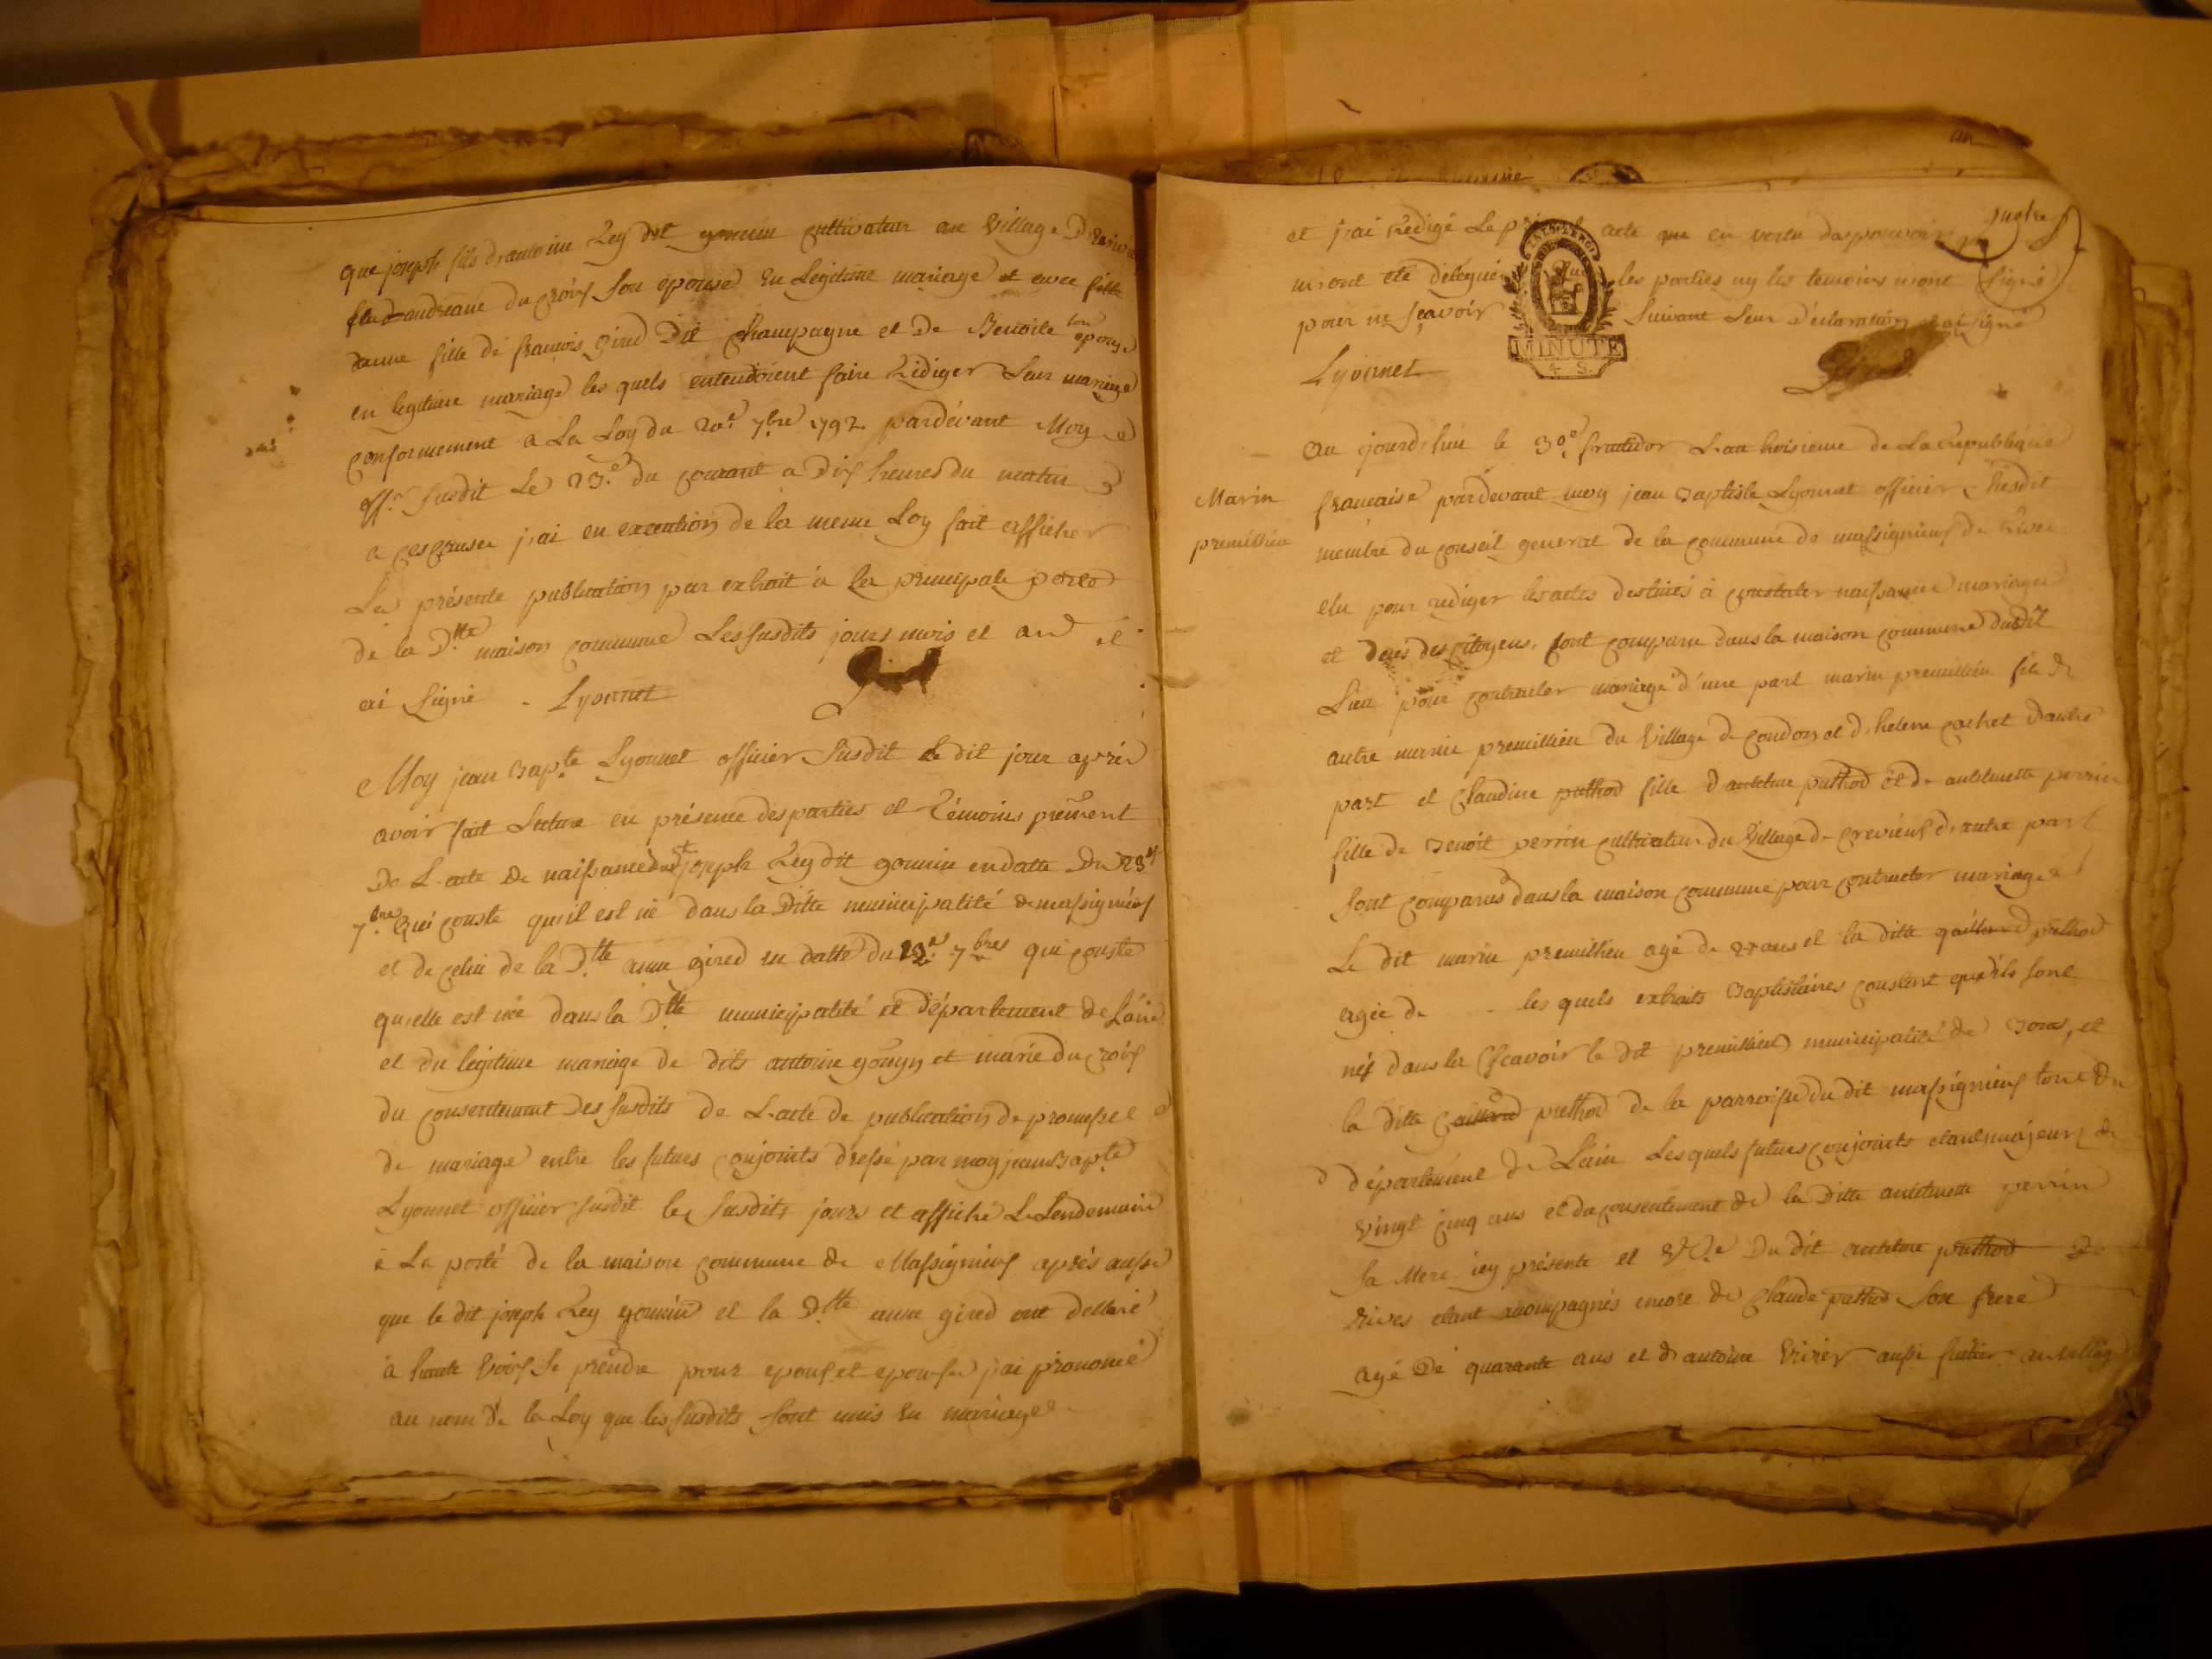 que joseph fils dantoine Rey dit gonnin cultivateur au village
du croix son epouse en legitime mariage et avec
anne fille de francois gired Dit Champagne et De Benoite son epouse
en legitime mariage les quels entendoient faire rédiger leur mariage
conformement a La Loy du 20e 7bre 1792 pardévant Moy
offr susdit Le 23e du courant a Dix heures du matin
a ces causes j'ai en execution de la meme Loy fait afficher
La présente publication par extrait à la principale porte
de la Dtte maison commune Les susdits jours mois et an et
ai signé - Lyonnet
Moy jean Bapte Lyonnet officier susdit Le dit jour aprés
avoir fait lecture en présence des parties et témoins
De L'acte De naissance dudt joseph Rey dit gonnin en datte Du 23e
7bre Qui conste qu'il est né dans la Ditte municipalité de massignieux
et de celui de la Dtte anne gired en datte du 7bre qui conste
qu'elle est née dans la Dtte municipalité et département de L'ain
et du legitime mariage de dits antoine gonyn et marie du croix
du consentement Des susdits De L'acte de publication de promesse
de mariage entre les futurs conjoints dressé par moy jean Bapte
Lyonnet officier susdit les susdits jours et affiché Le Lendemain
à La porte de la maison commune de Massignieux aprés aussi
que le dit joseph Rey gonnin et la Dtte anne gired ont declaré
à haute voix se prendre pour epoux et epouse j'ai prononcé
au nom de la Loy que les susdits sont unis en mariage
et j'ai rédigé Le acte en vertu des pouvoirs qui
m'ont été délégués les parties ny les temoins n'ont signé
pour ne sçavoir suivant leur Déclaration et ai signé
LA LOI LE ROI
MINUTE
4 S.
Lyonnet
Au jourd'hui le 30e fructidor L'an troisieme de La republique
Marin
premillieu
francaise pardevant moy jean Baptiste Lyonnet officier susdit
membre du conseil general de la commune de massignieux de rive
elu pour rédiger les actes destinés à constater naissance mariages
et decés des citoyens, sont comparu dans la maison commune dudit
Lieu pour contracter mariage d'une part marin premillieu fils de
autre marin premillieu du village de condon et d'helene cachet d'autre
part et Claudine puthod fille d'anthelme puthod et de anthelmette perrin
fille de Benoit perrin cultivateur du village de crevieux d'autre part
sont comparus dans la maison commune pour contracter mariage
Le dit marin premillieu agé de 27 ans et la ditte gaillard puthod
agée de - les quels extraits Baptistaires constent qu'ils sont
néé dans la Sçavoir le dit premillieu municipalité de et
la ditte gaillard puthod de la parroisse du dit massignieux tous du
département de L'ain Les quels futurs conjoints etant majeurs de
vingt cinq ans et du consentement de la Ditte anthelmette perrin
sa Mere icy présente et Du dit anthelme puthod De
rives etant accompagnés encore de Claude puthod son frere
agé De quarante ans et d'antoine aussi au village